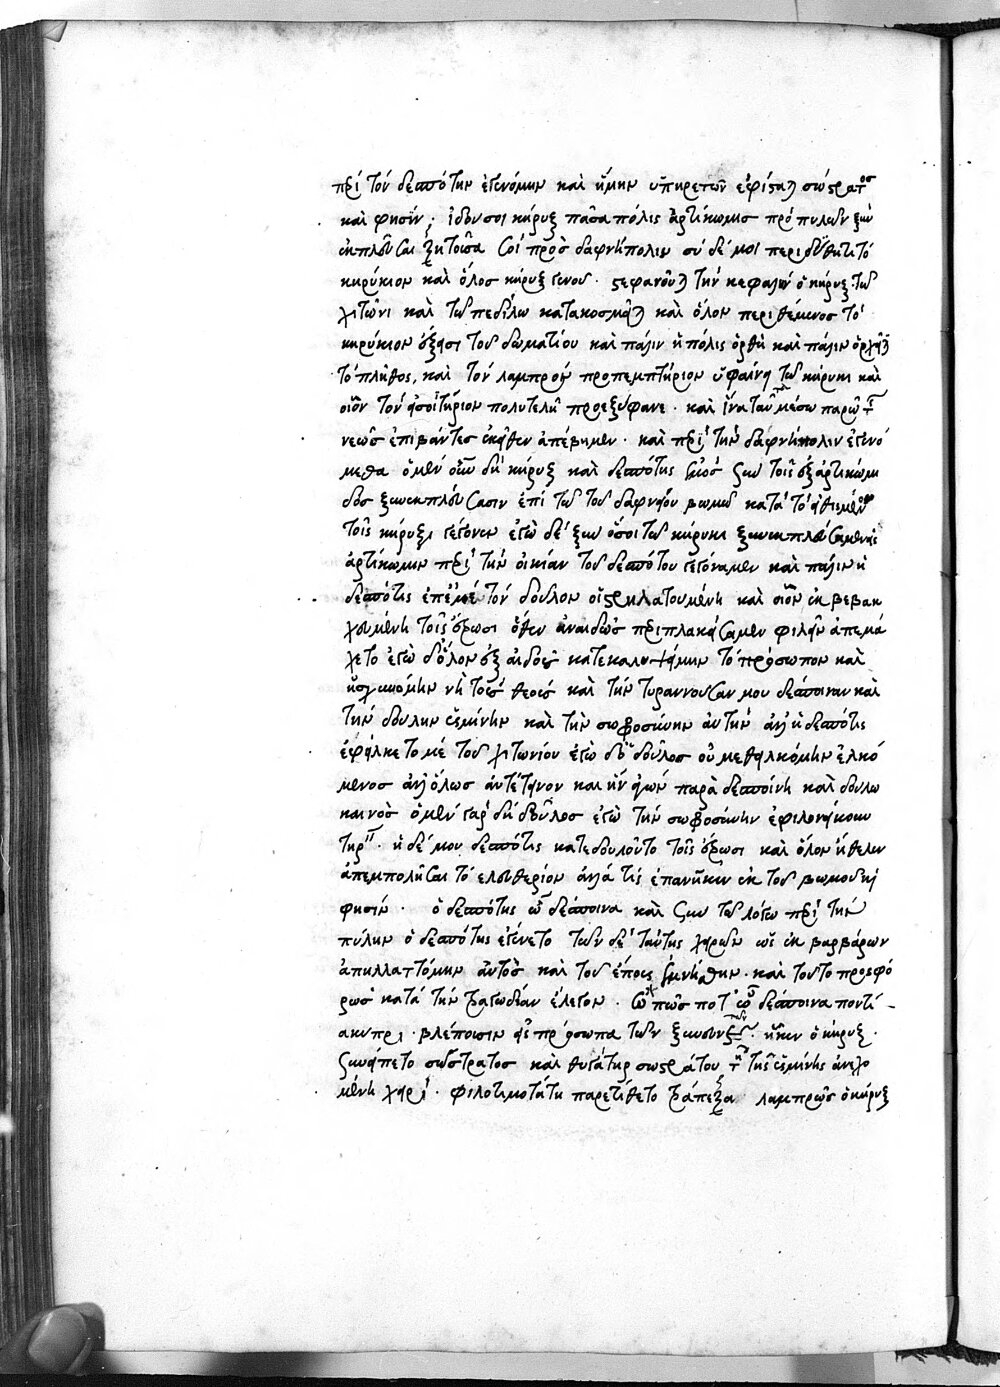 περὶ τὸν δεσπότην ἐγενόμην καὶ ἤμην ὑπηρετῶν ἐφίσταται σώστρατος
καὶ φησίν; ἰδού σοι κήρυξ πᾶσα πόλις ἀρτίκωμις πρὸ πυλῶν ξυν
εκπλεῦσαι ζητοῦσα σοὶ πρὸς δαφνήπολιν σὺ δέ μοι περιδύθητι τὸ
κηρύκιον καὶ ὅλος κήρυξ γενοῦ. στεφανοῦται τὴν κεφαλὴν ὁ κήρυξ. τῶ
χιτῶνι καὶ τῶ πεδίλω κατακοσμεῖται καὶ ὅλον περιθέμενος τὸ
κηρύκιον ἐξήει τοῦ δωματίου καὶ πάλιν ἡ πόλις ὀρθὴ καὶ πάλιν
τὸ πλῆθος, καὶ τὸν λαμπρὸν προπεμπτήριον ὑφαίνει τῶ κήρυκι καὶ
οἷον τὸν εἰσιτήριον πολυτελῆ προεξύφανε. καὶ ἵνα τἀν μέσω παρῶ
νεὼς ἐπιβάντες ἐκεῖθεν ἀπέβημεν. καὶ περὶ τὴν δαφνήπολιν ἐγενό
μεθα ὁ μὲν οὖν δὴ κήρυξ καὶ δεσπότης ἐμὸς σὺν τοῖς ἐξ ἀρτικώμι
δος ξυνεκπλεύσασιν ἐπὶ τῶ τοῦ δαφναίου βωμῶ κατὰ τὸ εἰθισμένον
τοῖς κήρυξι γέγονεν ἐγὼ δὲ ξὺν ὅσοι τῶ κήρυκι ξυνεκπλευσαμεν εἰς
ἀρτίκωμιν περὶ τὴν οἰκίαν τοῦ δεσπότου γεγόναμεν καὶ πάλιν ἡ
δεσπότις ἐπ' ἐμὲ τὸν δοῦλον οἰστρηλατουμένη καὶ οἷον ἐκβεβακ
χευμένη τοῖς ἔρωσι ὅθεν ἀναιδῶς περιπλακεῖσα μὲν φιλεῖν ἀπεμά
χετο ἐγὼ δ' ὅλον ἐξ αἰδοῦς κατεκαλυψάμην τὸ πρόσωπον καὶ
ἠσχυνόμην νὴ τοὺς θεοὺς καὶ τὴν τυραννοῦσάν μου δέσποιναν καὶ
τὴν δούλην ὑσμίνην καὶ τὴν σωφροσύνην αὐτὴν ἀλλ' ἡ δεσπότις
ἐφεῖλκετό με τοῦ χιτωνίου ἐγὼ δ' ὁ δοῦλος οὐ μεθειλκόμην ἑλκό
μενος ἀλλ' ὅλως ἀντέτεινον καὶ ἦν ἀγὼν παρὰ δεσποίνη καὶ δούλω
καινὸς ὁ μὲν γὰρ δὴ δοῦλος ἐγὼ τὴν σωφροσύνην ἐφιλονείκουν
τηρεῖν. ἡ δέ μου δεσπότις κατεδουλοῦτο τοῖς ἔρωσι καὶ ὅλον ἤθελεν
ἀπεμπολῆσαι τὸ ἐλευθέριον ἀλλά τις ἐπανῆκεν ἐκ τοῦ βωμοῦ καὶ
φησίν. ὁ δεσπότης ὦ δέσποινα καὶ σὺν τῶ λόγω περὶ τὴν
πύλην ὁ δεσπότης ἐγένετο τῶν δὲ ταύτης χειρῶν ὡς ἐκ βαρβάρων
ἀπηλλαττόμην αὐτὸς καὶ τοῦ ἔπους ἐμνήσθην. καὶ τοῦτο προσφό
ρως κατὰ τὴν τραγωδίαν ἔλεγον. ὦ πῶς ποτ' ὦ δέσποινα ποντί-
α κύπρι. βλέπουσιν εἰς πρόσωπα τῶν ξυνευνετῶν. ἧκεν ὁ κήρυξ.
συνείπετο σώστρατος καὶ θυγάτηρ σωστράτου τῆς ὑσμίνης ἀνεχο
μένη χειρί. φιλοτιμοτάτη παρετίθετο τράπεζα λαμπρῶς ὁ κήρυξ